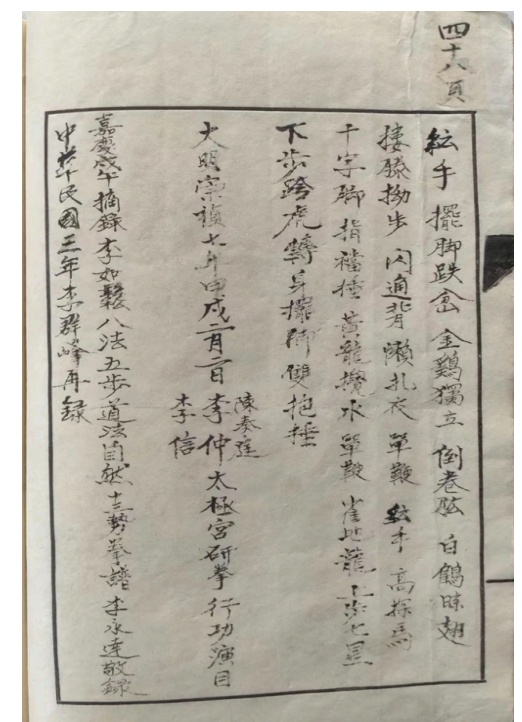 四十八頁
紜手 擺脚跌岔 金鷄獨立 倒卷肱 白鶴晾翅
摟膝拗步 闪通背 懶扎衣 單鞭 紜手 高探馬
十字脚 指襠捶 黄龍攪水 單鞭 雀地龍 上步七星
下步跨虎 轉身擺脚 雙抱捶
大明崇禎七年甲戌二月二日 陳奏庭 李仲 李信 太極宫研拳 行功演目
嘉慶戊午摘錄 李如鬆 八法五步道法自然 十三勢拳譜 李永達敬錄
中華民國三年李群峰再録